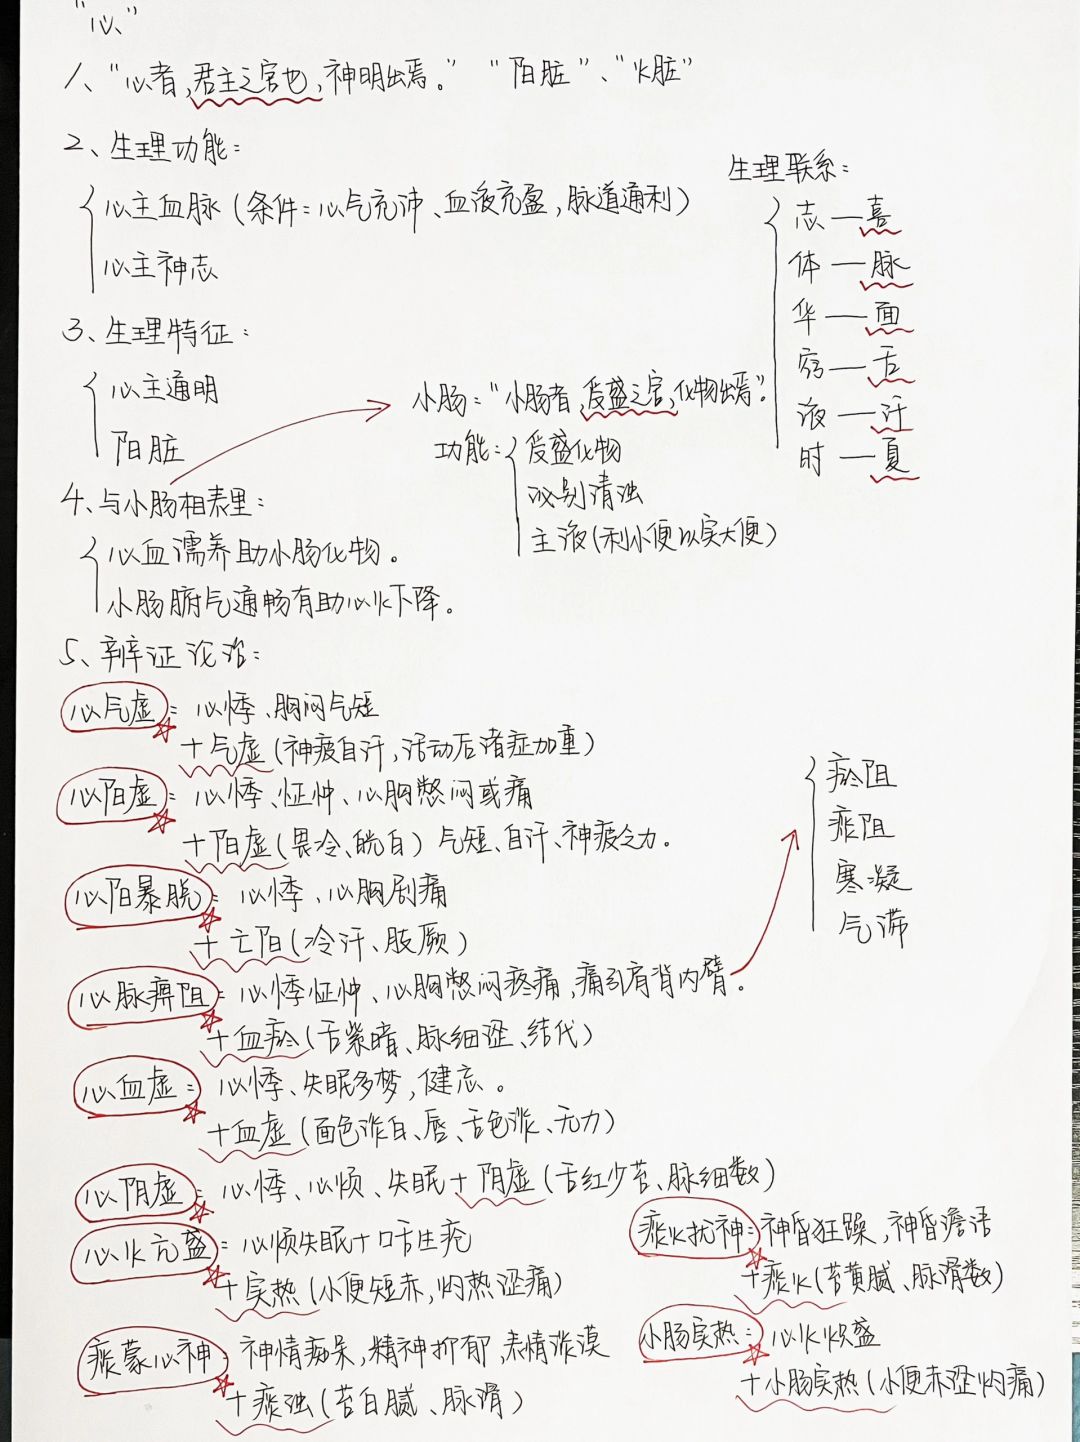 “心”
1、“心者，君主之官也，神明出焉。” “阳脏”、“火脏”
2、生理功能：
心主血脉（条件：心气充沛、血液充盈，脉道通利）
心主神志
生理联系：
志—喜
体—脉
华—面
窍—舌
液—汗
时—夏
3、生理特征：
心主通明
阳脏
小肠：“小肠者，受盛之官，化物出焉”。
功能：受盛化物
泌别清浊
主液（利小便以实大便）
4、与小肠相表里：
心血濡养助小肠化物。
小肠腑气通畅有助心火下降。
5、辨证论治：
心气虚：心悸、胸闷气短
+气虚（神疲自汗，活动后诸症加重）
心阳虚：心悸、怔忡、心胸憋闷或痛
+阳虚（畏冷、㿠白）气短、自汗、神疲乏力。
心阳暴脱：心悸、心胸剧痛
+亡阳（冷汗、肢厥）
心脉痹阻：心悸怔忡、心胸憋闷疼痛，痛引肩背内臂。
+血瘀（舌紫暗、脉细涩、结代）
瘀阻
痰阻
寒凝
气滞
心血虚：心悸、失眠多梦，健忘。
+血虚（面色淡白、唇、舌色淡、无力）
心阴虚：心悸、心烦、失眠+阴虚（舌红少苔、脉细数）
心火亢盛：心烦失眠+口舌生疮
+实热（小便短赤，灼热涩痛）
痰火扰神：神昏狂躁，神昏谵语
+痰火（苔黄腻、脉滑数）
痰蒙心神：神情痴呆，精神抑郁，表情淡漠
+痰浊（苔白腻、脉滑）
小肠实热：心火炽盛
+小肠实热（小便赤涩灼痛）